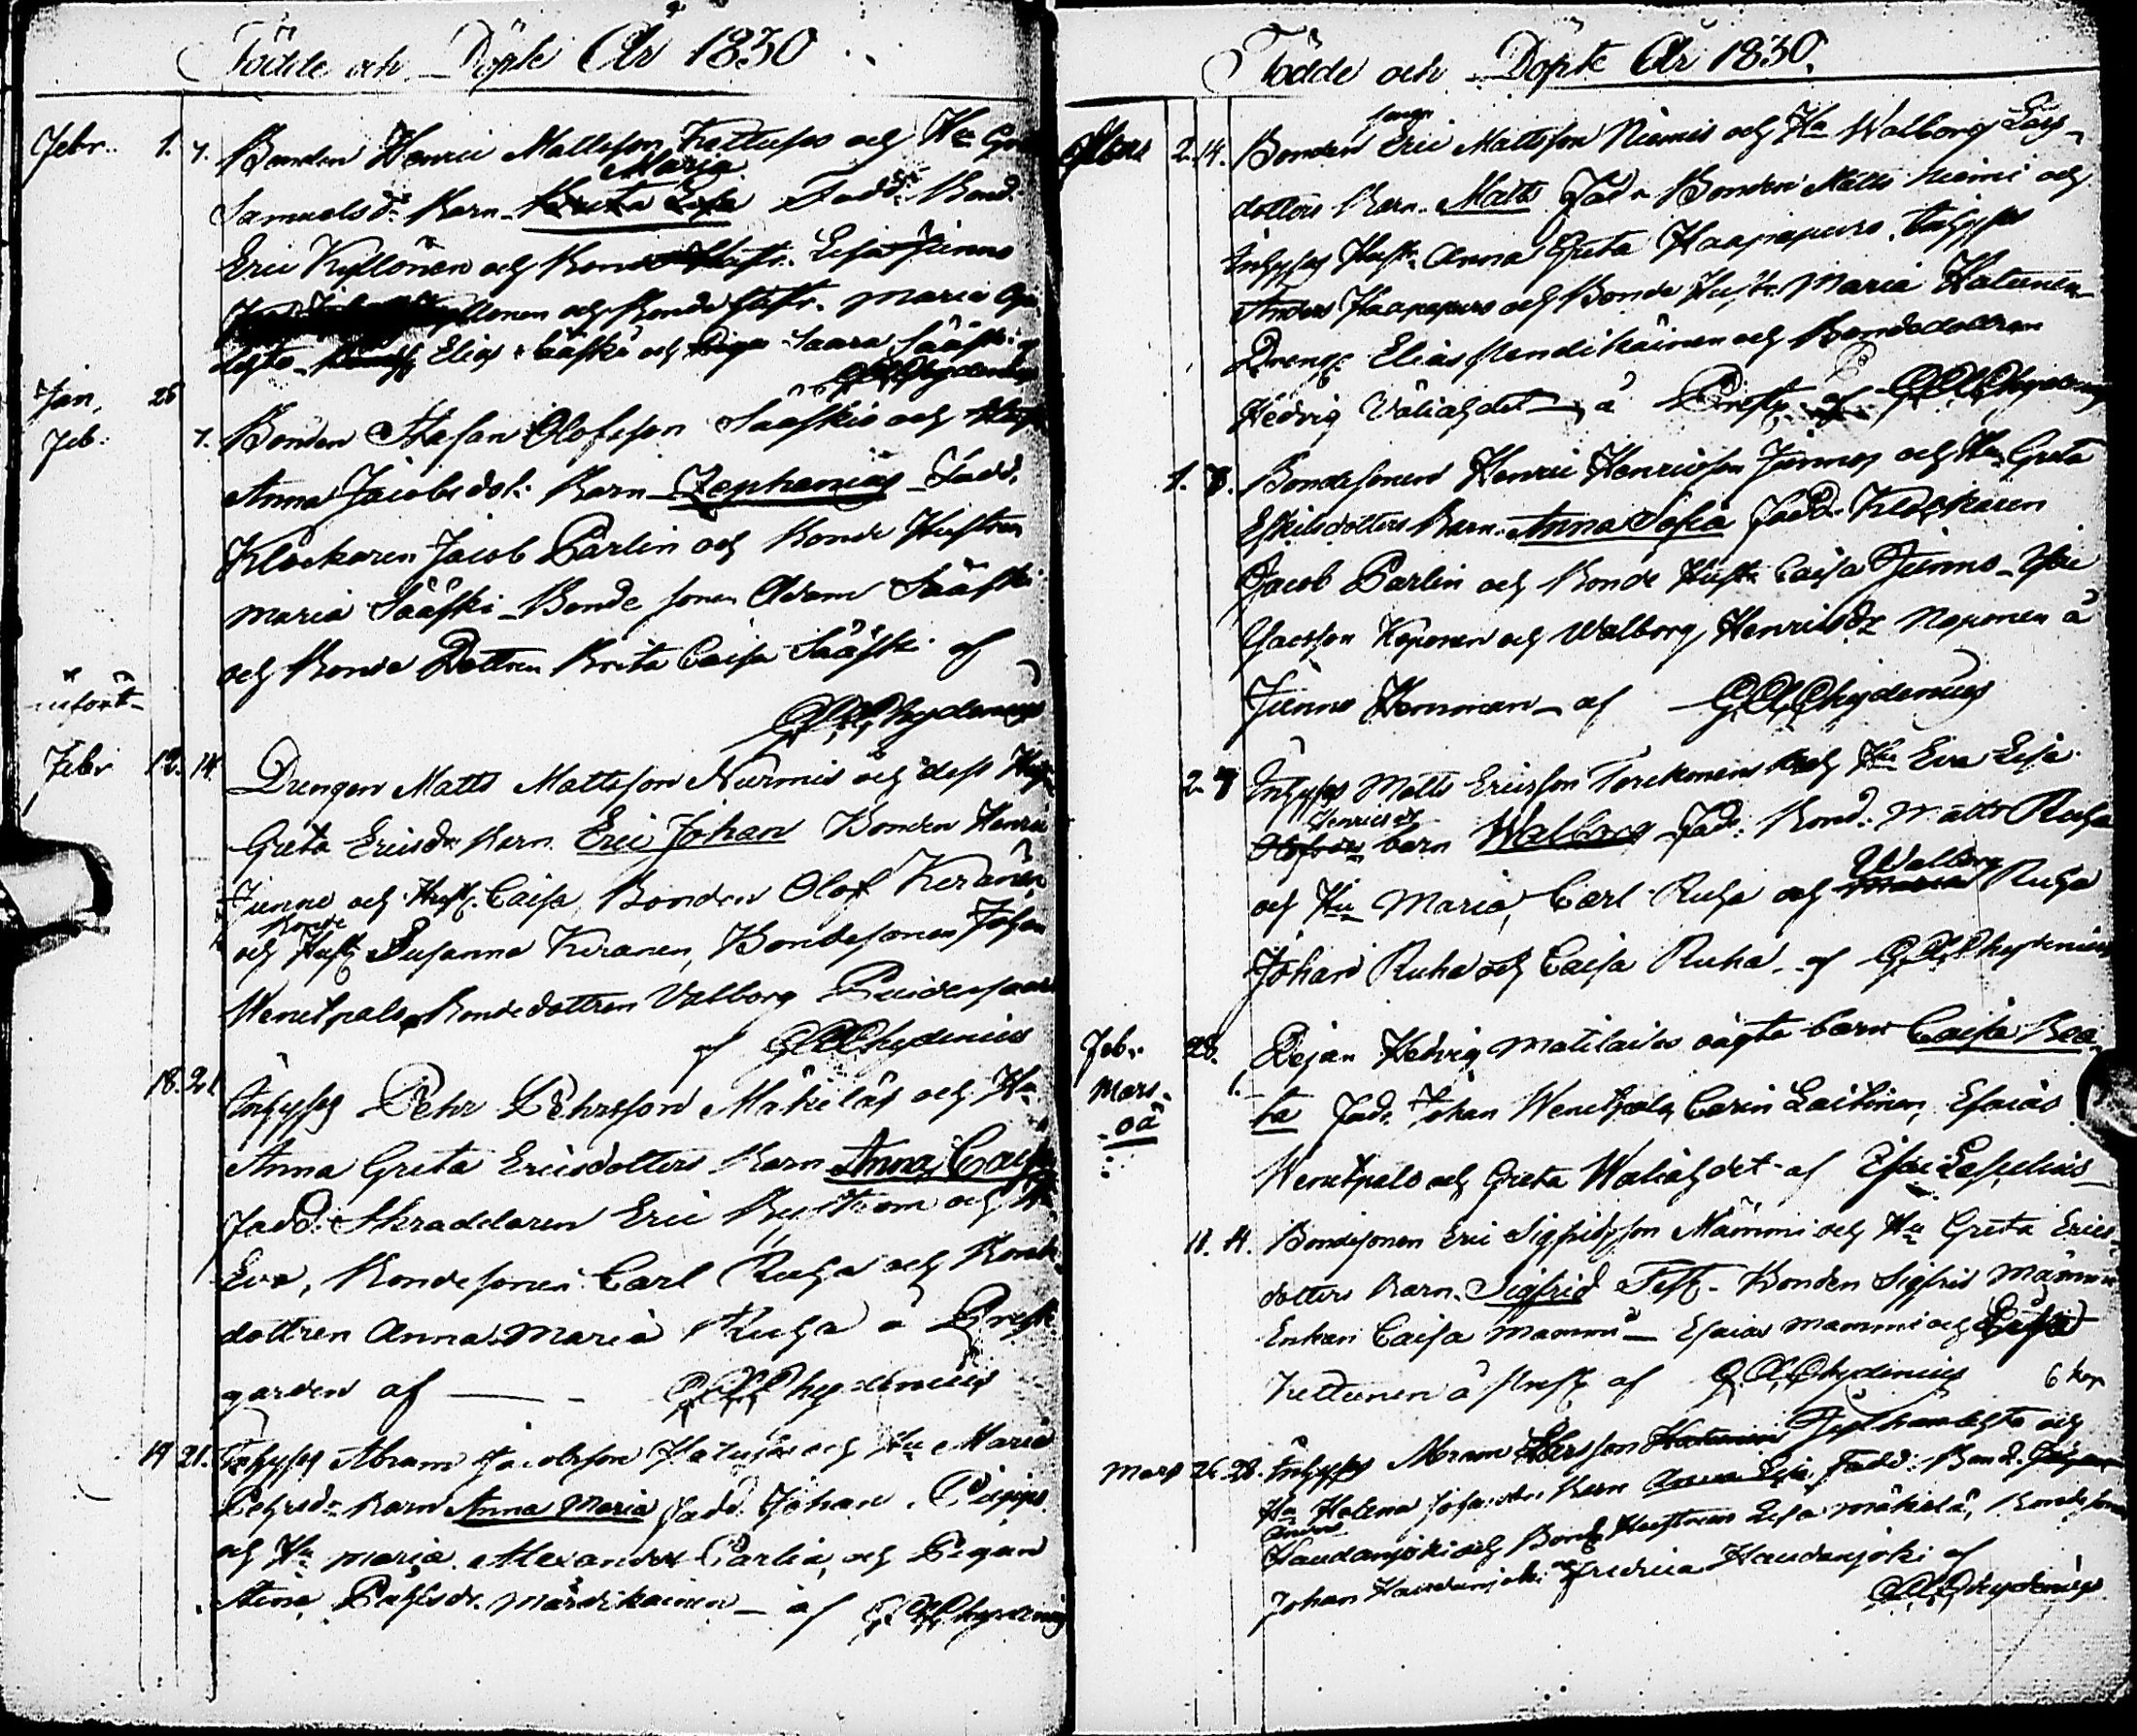 Födde och Döpte År 1830
Febr. 1. 7. Bonden Henric Mattsson Kettuses och Hu
Maria
Samuelsd:r Barn Fadd: Bond:
Eric Kyllönen och Bond Hustr. Lisa Junno
och Bonde Hustr. Maria
Elias Sääski och Piga Saara Sääski
GAChydenius
Jan. 26
Feb. 7. Bonden Stefan Olofsson Sääskis och
Anna Jacobsdot: Barn Zephanias Fadd.
Klockaren Jacob Parlin och Bonde Hustrun
Maria Sääski Bonde sonen Adam Sääski
och Bonde Dottren Brita Caisa Sääski af
infört
GAChydenius
Febr 12. 14. Drengen Matts Mattsson Nurmis och dess
Greta Ericsdr Barn Eric Johan Bonden Henric
Junno och Hustr. Caisa, Bonden Olof Keränen
Bonde
och Hust Susanna Keranen, Bondesonen Johan
Wenetpalo, Bondedottren Valborg
af GAChydenius
18. 21 Inhyses Pehr Pehrsson Mäkeläs och Hu
Anna Greta Ericsdotters Barn Anna Caisa
Fadd: Skraddaren Eric och Hu
Eva, Bondesonen Carl Ruha och Bonde
dottren Anna Maria Ruha å Prest
garden af GAChydenius
19 21. Inhyses Abram Jacobsson och Hu Maria
Pehrsdr Barn Anna Maria Fadd. Johan Piippo
och Hu Maria Alexander Parlin, och Pigan
Stina Pahlsdr. Märdikainen af GAChydenius
Födde och Döpte År 1830.
Mars 2. 14. Bonden sonen Eric Mattsson Niemis och Hu Walborg Lars
dotters Barn. Matts Fad. Bonden Matts Niemi och
Inhyses Hustr. Anna Greta Haapapuro. Inhyses
Anders Haapapuro och Bonde Hustr. Maria Hatunen
Dreng: Elias och Bondedottren
Hedvig Välialdet å Prestg. af GAChydenius
1. 7. Bondesonen Henric Henricsson Junnos och Hu Greta
Eskilsdotters Barn. Anna Sofia Fadd. Klockaren
Jacob Parlin och Bonde Hustr. Caisa Junno
Koponen och Walborg Henricsdr Koponen å
Junno Hemman af GAChydenius
2. 7 Inhyses Matts Ericsson och Hu Eva Lisa
Henricsdr
barn Walborg Fadd: Bond: Matts Ruha
Walborg
och Hu Maria, Carl Ruha och Ruha
Johan Ruha och Caisa Ruha af GAChydenius
Febr. 28. Pejan Hedvig Matilaises oägta barn Caisa Bea
Mars 1.
oä ta Fadd. Johan Wenetpalo, Carin Laitinen, Esaias
Wenetpalo och Greta Walialdet af
11. 14. Bondesonen Eric Sigfridsson Mämmi och Hu Greta Erics
dotters Barn. Sigfrid Test. Bonden Sigfrid Mämmi
Enkan Caisa Mammi Esaias Mammi och
Kettunen å Prestg af GAChydenius 6 kop
Mars 26 28. Inhyses Abram och
Hu Helena Johansdr Barn Anna Lisa, Fadd: Bond.
Haudanjoki och Bonde Hustrun Lisa Mäkelä, Bondesonen
Johan Haudanjoki och Fredrica Haudanjoki af
GAChydenius